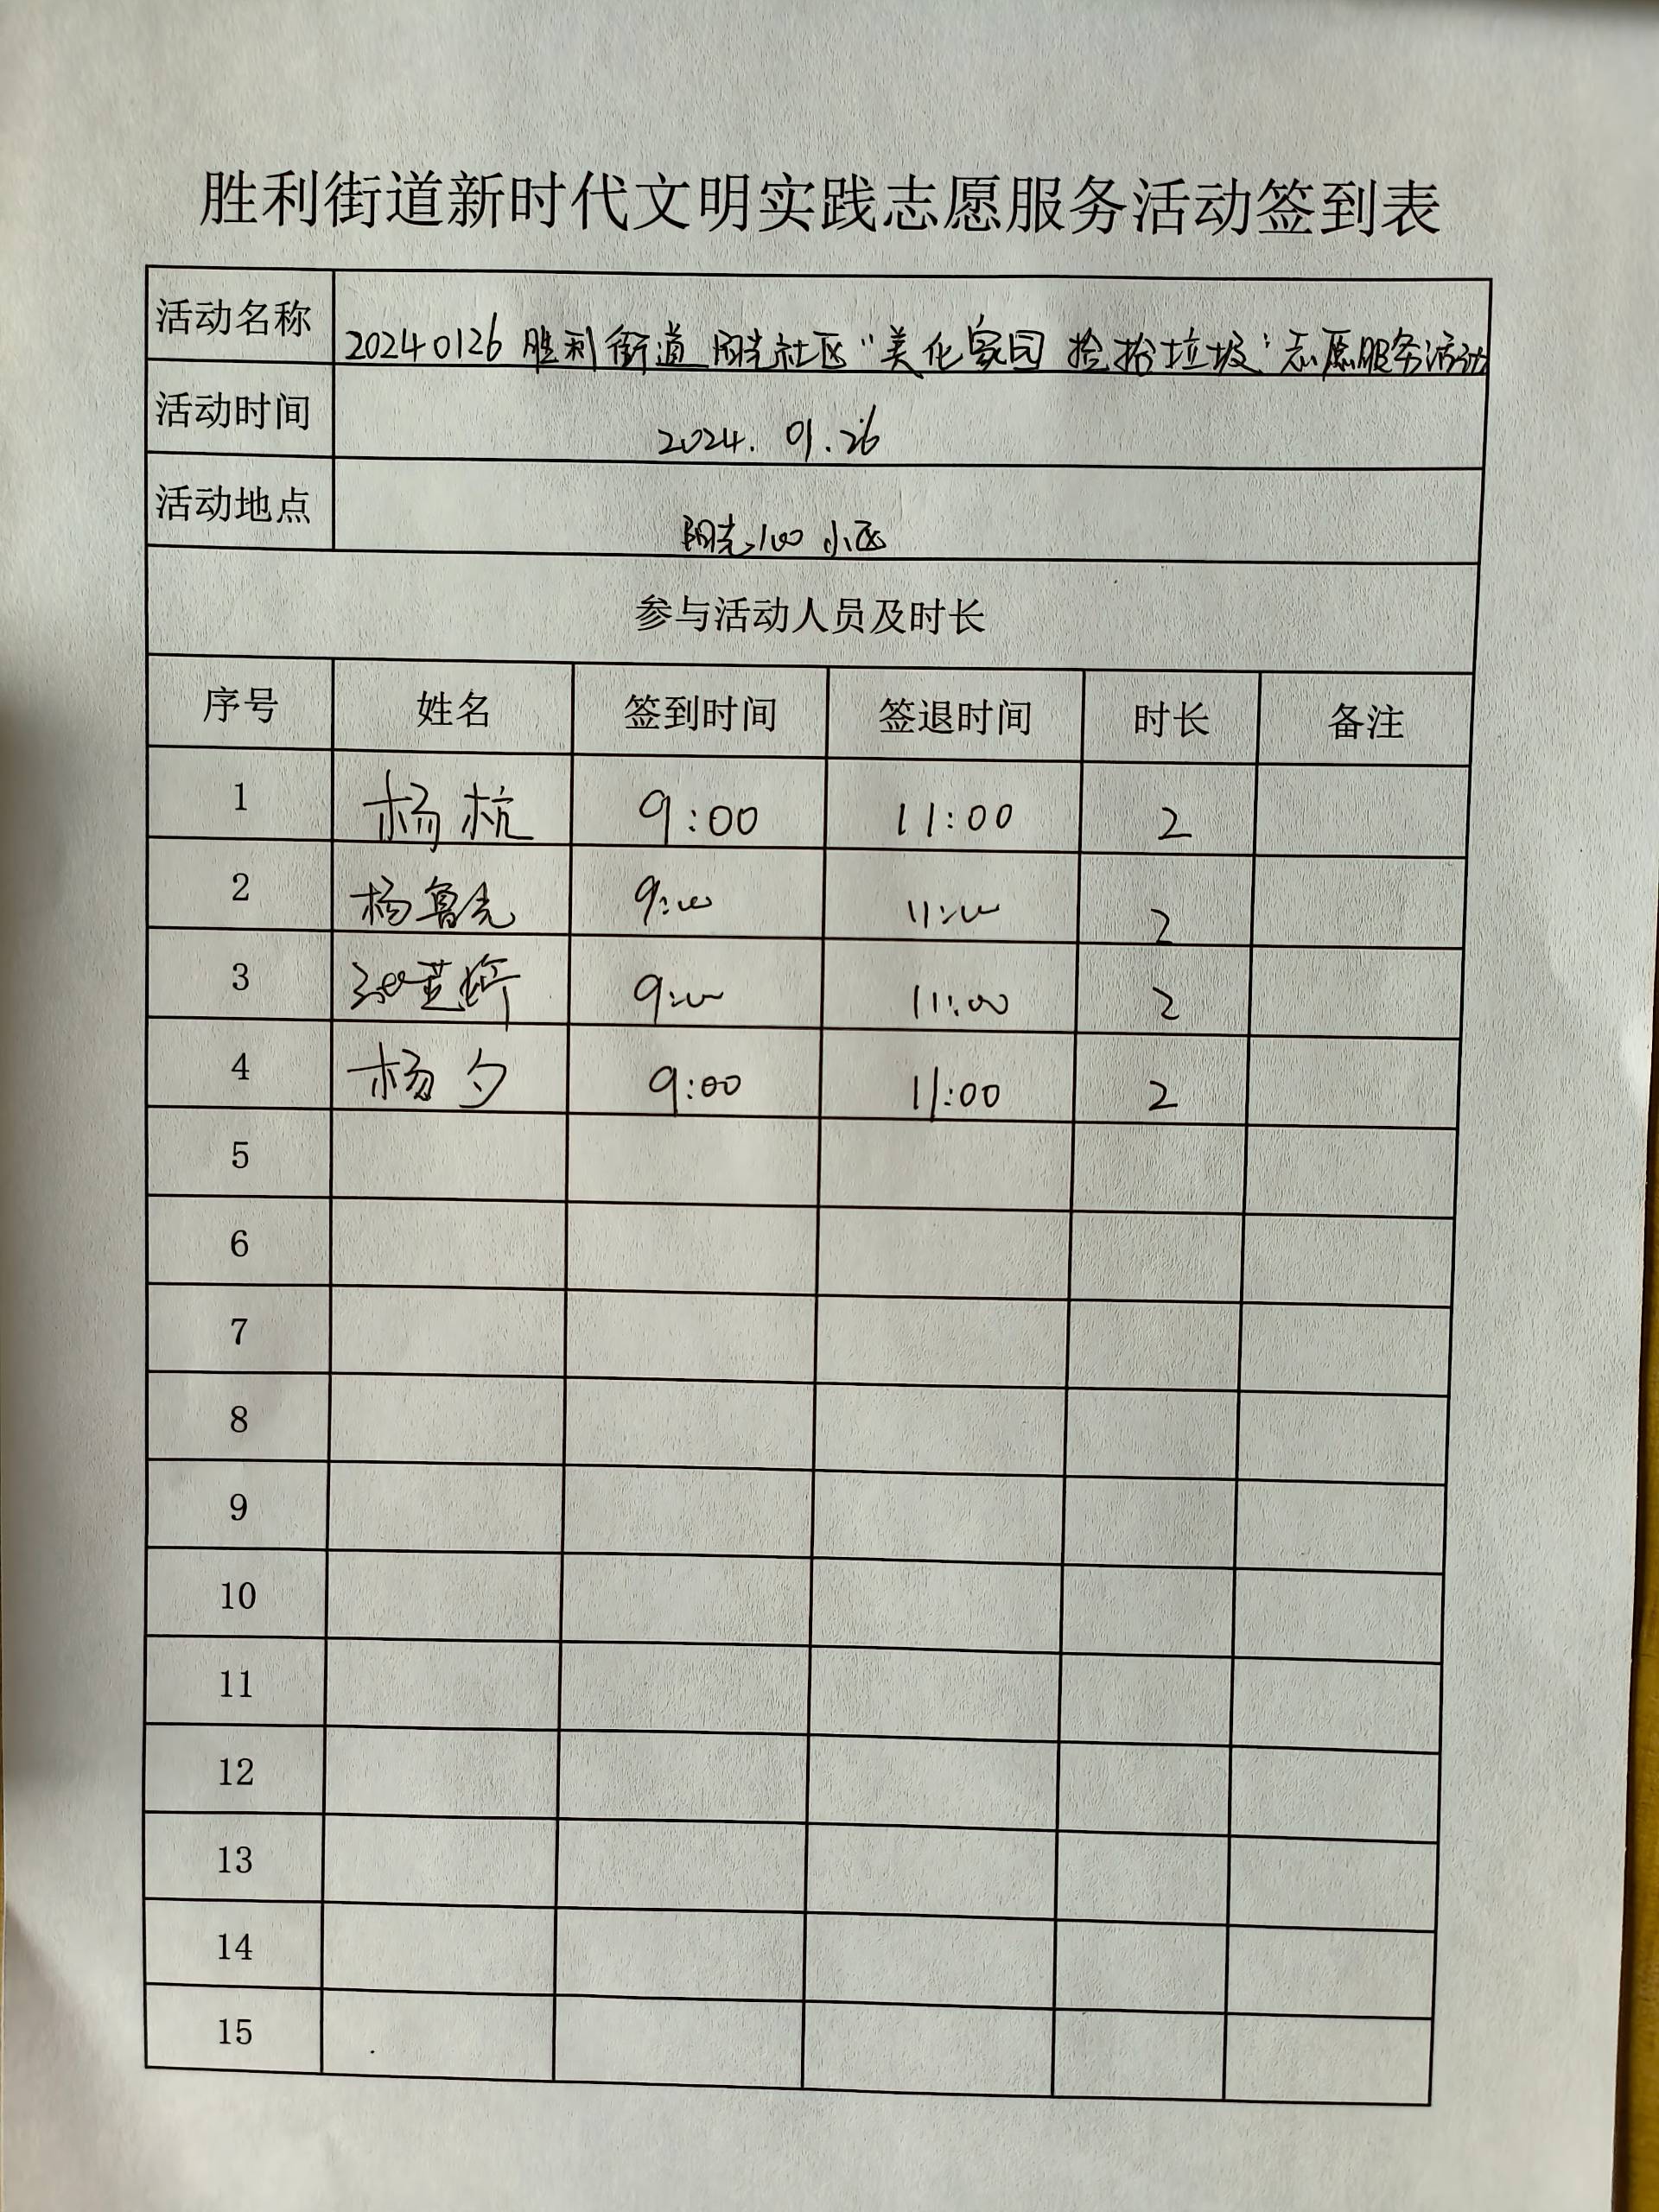 胜利街道新时代文明实践志愿服务活动签到表
活动名称 20240126 胜利街道阳光社区“美化家园 捡拾垃圾”志愿服务活动
活动时间 2024.01.26
活动地点 阳光100小区
参与活动人员及时长
序号 姓名 签到时间 签退时间 时长 备注
1 杨杭 9:00 11:00 2
2 杨鲁光 9:00 11:00 2
3 9:00 11:00 2
4 杨夕 9:00 11:00 2
5
6
7
8
9
10
11
12
13
14
15